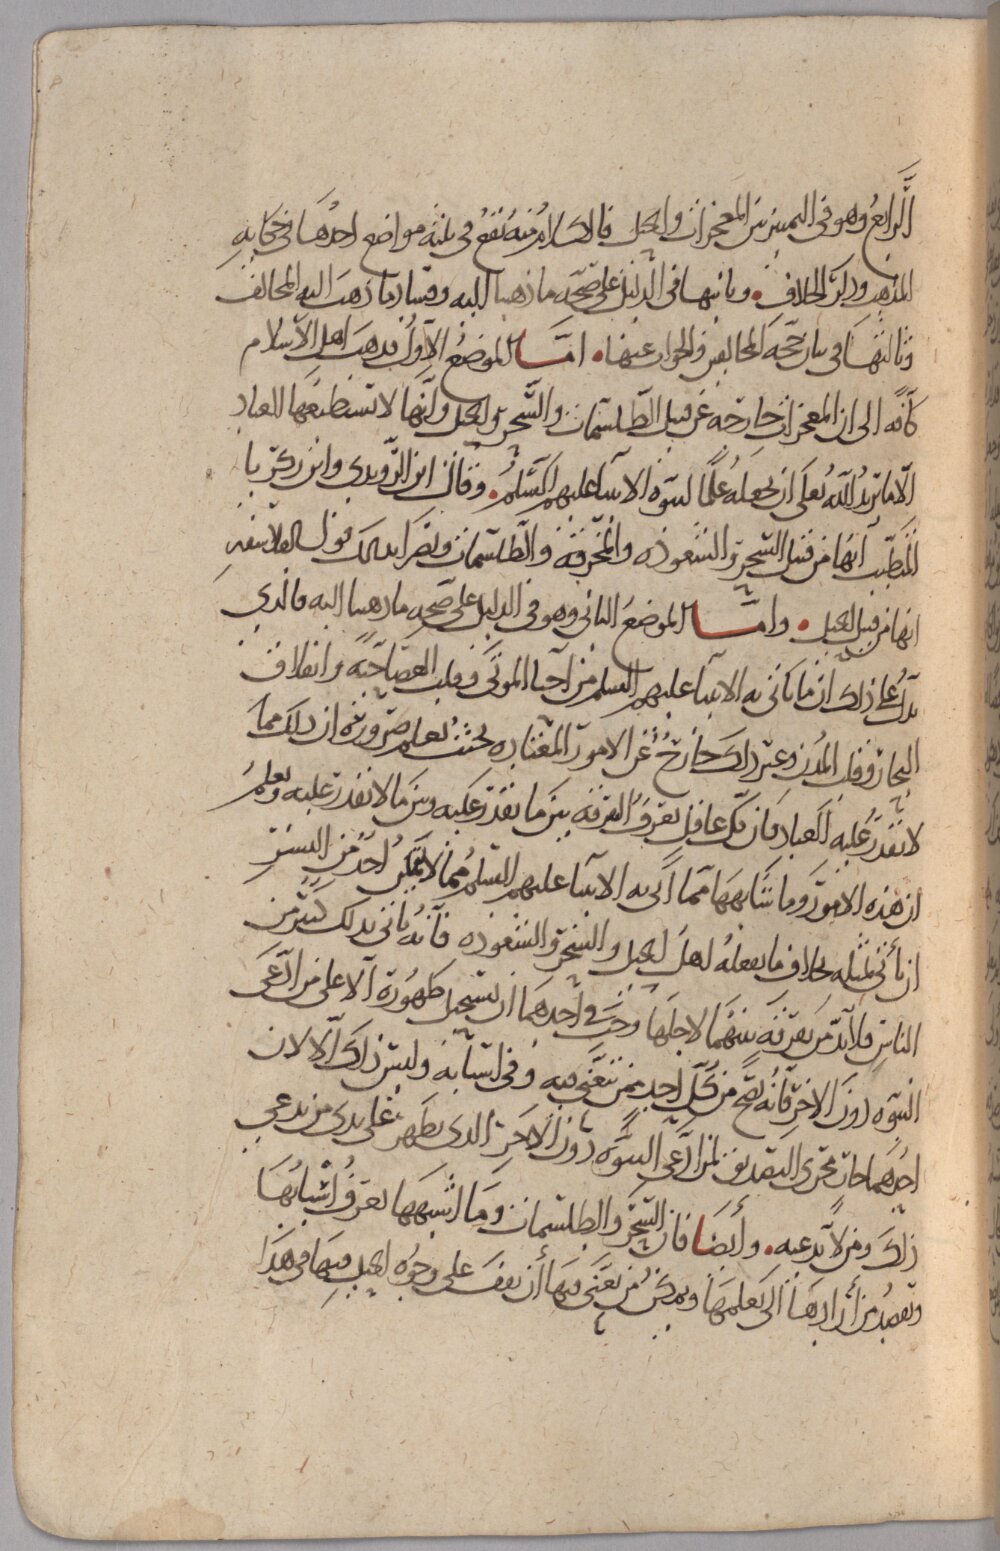 الرابع وهو في التمييز بين المعجزات والحيل فالكلام منه يقع في ثلثة مواضع احدها في حكاية
المذهب وذكر الخلاف • وثانيها في الدليل على صحة ما ذهبنا اليه وفساد ما ذهب اليه المخالف
وثالثها في بيان حجة المخالفين والجواب عنها • امّا الموضع الاول فذهب اهل الاسلام
كآفّة الى ان المعجزات خارجة عن قبيل الطلسمات والسحر والحيل وانها لا تستطيعها العباد
الا ما يريد الله تعلى ان يجعله علما لنبوة الانبيآ عليهم السلم • وقال ابن الروندي وابن زكريا
المتطبب انها من قبيل السحر والشعوذة والمخرقة والطلسمات وبصر كذلك قول الفلاسفه
انها من قبيل الحيل • وامّا الموضع الثاني وهو في الدليل على صحة ما ذهبنا اليه فالذي
يدل على ذلك ان ما ياتي به الانبيآ عليهم السلم من احيا الموتى وقلب العصا حية وانفلاق
البحار وقلب المدن وغير ذلك خارج عن الامور المعتاده بحيث يعلم ضرورة ان ذلك مما
لا يقدر عليه العباد فان كل عاقل يعرف الفرقة بين ما نقدر عليه وبين ما لا نقدر عليه ويعلم
ان هذه الامور وما شابهها مما اتى به الانبيآ عليهم السلم مما لا يمكن احد من البشر
ان يأتي بمثله بخلاف ما يفعله اهل الحيل والسحر والشعوذه فانه ياتي بذلك كثير من
الناس فلا بد من تفرقة بينهما لاجلها وجب في احدهما ان يستحيل ظهوره الا على من ادعى
النبوة دون الاخر فانه يصح من كل احد ممن يتعنى فيه وفي اسبابه وليس ذلك الا لان
احدهما جار مجرى التصديق لمن ادعى النبوة دون الاخر الذي يظهر على يدي من يدعي
ذلك ومن لا يدعيه • وأيضا فان السحر والطلسمات وما اشبهها يعرف اسبابها
ويقصد من أرادها الى تعلمها ويمكن من يعنى فيها أن يقف على وجوه الحيل فيها في هذا